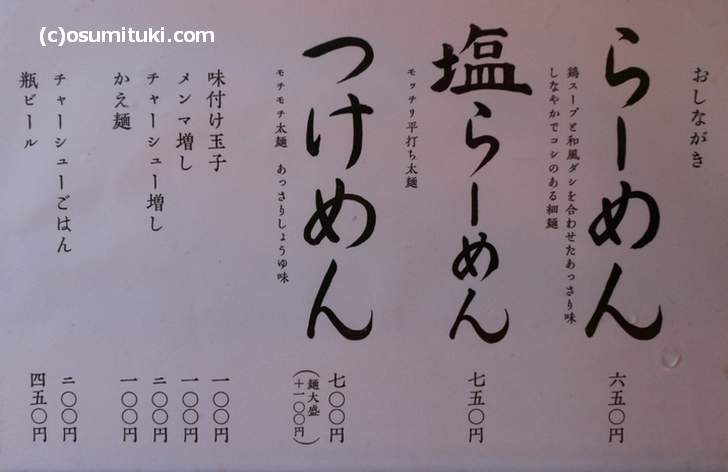 (c)osumituki.com
おしながき
らーめん
鶏スープと和風ダシを合わせたあっさり味
しなやかでコシのある細麺
六五〇円
塩らーめん
モッチリ平打ち太麺
七五〇円
つけめん
モチモチ太麺　あっさりしょうゆ味
七〇〇円
(麺大盛
+一〇〇円)
味付け玉子
一〇〇円
メンマ増し
一〇〇円
チャーシュー増し
二〇〇円
かえ麺
一〇〇円
チャーシューごはん
二〇〇円
瓶ビール
四五〇円